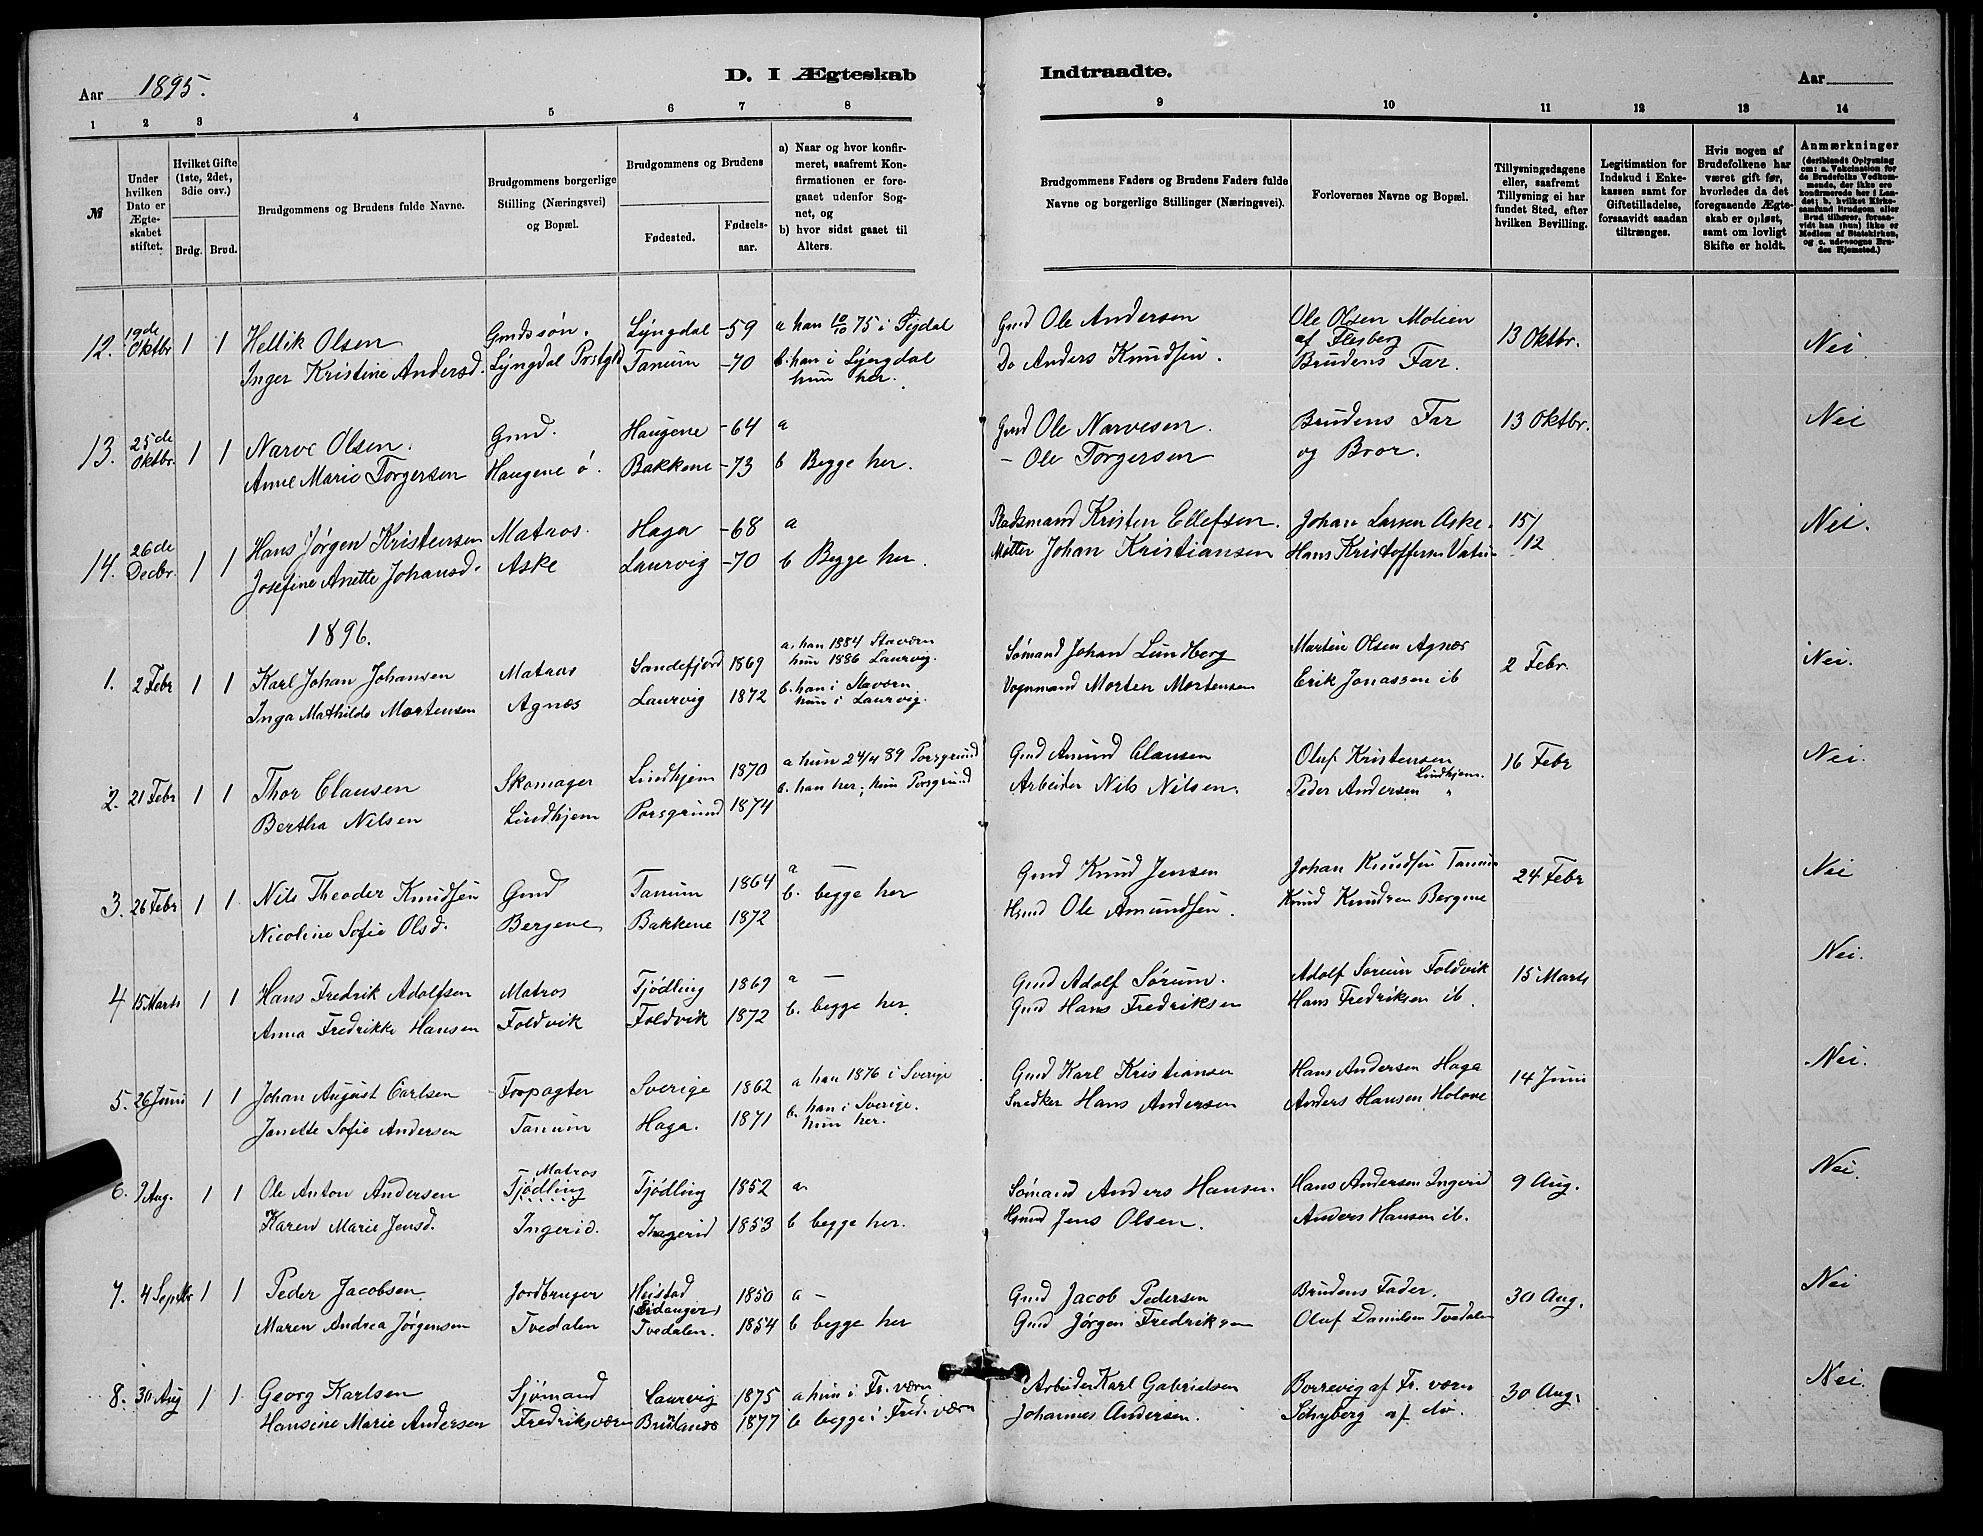 Aar 1895.
D. I Ægteskab
Indtraadte.
Aar
1 2 3 4 5 6 7 8 9 10 11 12 13 14
№
Under hvilken Dato er Ægteskabet stiftet.
Hvilket Gifte (1ste, 2det, 3die osv.)
Brdg. Brud.
Brudgommens og Brudens fulde Navne.
Brudgommens borgerlige Stilling (Næringsvei) og Bopæl.
Brudgommens og Brudens
Fødested.
Fødselsaar.
a) Naar og hvor konfirmeret, saafremt Konfirmationen er foregaaet udenfor Sognet, og
b) hvor sidst gaaet til Alters.
Brudgommens Faders og Brudens Faders fulde Navne og borgerlige Stillinger (Næringsvei).
Forlovernes Navne og Bopæl.
Tillysningsdagene eller, saafremt Tillysning ei har fundet Sted, efter hvilken Bevilling.
Legitimation for Indskud i Enkekassen samt for Giftetilladelse, forsaavidt saadan tiltrænges.
Hvis nogen af Brudefolkene har været gift før, hvorledes da det foregaaende Ægteskab er opløst, samt om lovligt Skifte er holdt.
Anmærkninger
(deriblandt Oplysning om: a. Vakcination for de Brudefolks Vedkommende, der ikke ere konfirmerede her i Landet; b. hvilket Kirkesamfund Brudgom eller Brud tilhører, forsaavidt han (hun) ikke er Medlem af Statskirken, og c. udensogns Brudes Hjemsted.)
12. 19de Oktbr 1 1 Hellik Olsen Gmdssøn. Lyngdal -59 a han 10/10 75 i Sigdal Gmd Ole Andersen Ole Olsen Molien af Flesberg 13 Oktbr. Nei
Inger Kristine Andersd. Lyngdal Prstgld Tanum -70 b. han i Lyngdal hun her. Do Anders Knudsen. Brudens Far.
13. 25de Oktbr. 1 1 Narve Olsen. Gmd. Haugene -64 a Gmd Ole Narvesen. Brudens Far 13 Oktbr. Nei
Anne Marie Torgersen Haugene ø. Bakkene -73 b Begge her. - Ole Torgersen og Bror.
14. 26de Decbr. 1 1 Hans Jørgen Kristensen Matros. Haga -68 a Baadsmand Kristen Ellefsen. Johan Larsen Aske. 15/12 Nei.
Josefine Anette Johansd. Aske Laurvig -70 b Begge her. Møller Johan Kristiansen Hans Kristoffersen
1896.
1. 2 Febr 1 1 Karl Johan Johansen Matros Sandefjord 1869 a. han 1884 Staværn hun 1886 Laurvig. Sømand Johan Lundberg Martin Olsen Agnæs 2 Febr. Nei.
Inga Mathilde Mortensen Agnæs Laurvig 1872 b. han i Stavern hun i Laurvig. Vognmand Morten Mortensen Erik Jonassen ib
2. 21 Febr 1 1 Thor Clausen Skomager Lindhjem 1870 a hun 24/4 89 Porsgrund Gmd Amund Clausen Oluf Kristensen Lindhjem. 16 Febr Nei.
Bertha Nilsen Lindhjem Porsgrund 1874 b. han her; hun Porsgrund Arbeider Nils Nilsen. Peder Andersen "
3. 26 Febr 1 1 Nils Theodor Knudsen Gmd Tanum 1864 a — Gmd Knud Jensen Johan Knudsen Tanum 24 Febr Nei
Nicoline Sofie Olsd. Bergene Bakkene 1872 b. begge her Hsmd Ole Amundsen. Knud Knudsen Bergene
4 15 Marts 1 1 Hans Fredrik Adolfsen Matros Tjødling 1869 a — Gmd Adolf Sørum. Adolf Sørum Foldvik 15 Marts Nei.
Anna Fredrikke Hansen Foldvik Foldvik 1872 b. begge her. Gmd Hans Fredriksen Hans Fredriksen ib.
5. 26 Juni 1 1 Johan August Carlsen Forpagter Sverige 1862 a han 1876 i Sverige Gmd Karl Kristiansen Hans Andersen Haga 14 Juni Nei.
Janette Sofie Andersen Tanum Haga. 1871 b. han i Sverige. hun her. Snedker Hans Andersen Anders Hansen Holove
6. 9 Aug. 1 1 Ole Anton Andersen Matros Tjødling Tjødling 1852 a. Sømand Anders Hansen. Hans Andersen Ingerid 9 Aug. Nei.
Karen Marie Jensd. Ingerid. Ingerid 1853 b begge her. Hsmd Jens Olsen. Anders Hansen ib.
7. 4 Septbr 1 1 Peder Jacobsen Jordbruger Heistad (Eidanger) 1850 a — Gmd Jacob Pedersen Brudens Fader. 30 Aug. Nei
Maren Andrea Jørgensen Tvedalen Tvedalen. 1854 b begge her Gmd Jørgen Fredriksen Oluf Danielsen Tvedalen
8. 30 Aug 1 1 Georg Karlsen Sjømand Laurvig 1875 a hun i Fr. værn Arbeider Karl Gabrielsen Borrevig af Fr. værn 30 Aug. Nei.
Hansine Marie Andersen Fredriksværn Brunlanæs 1877 b begge i Fred. værn Johannes Andersen. Schyberg af do.